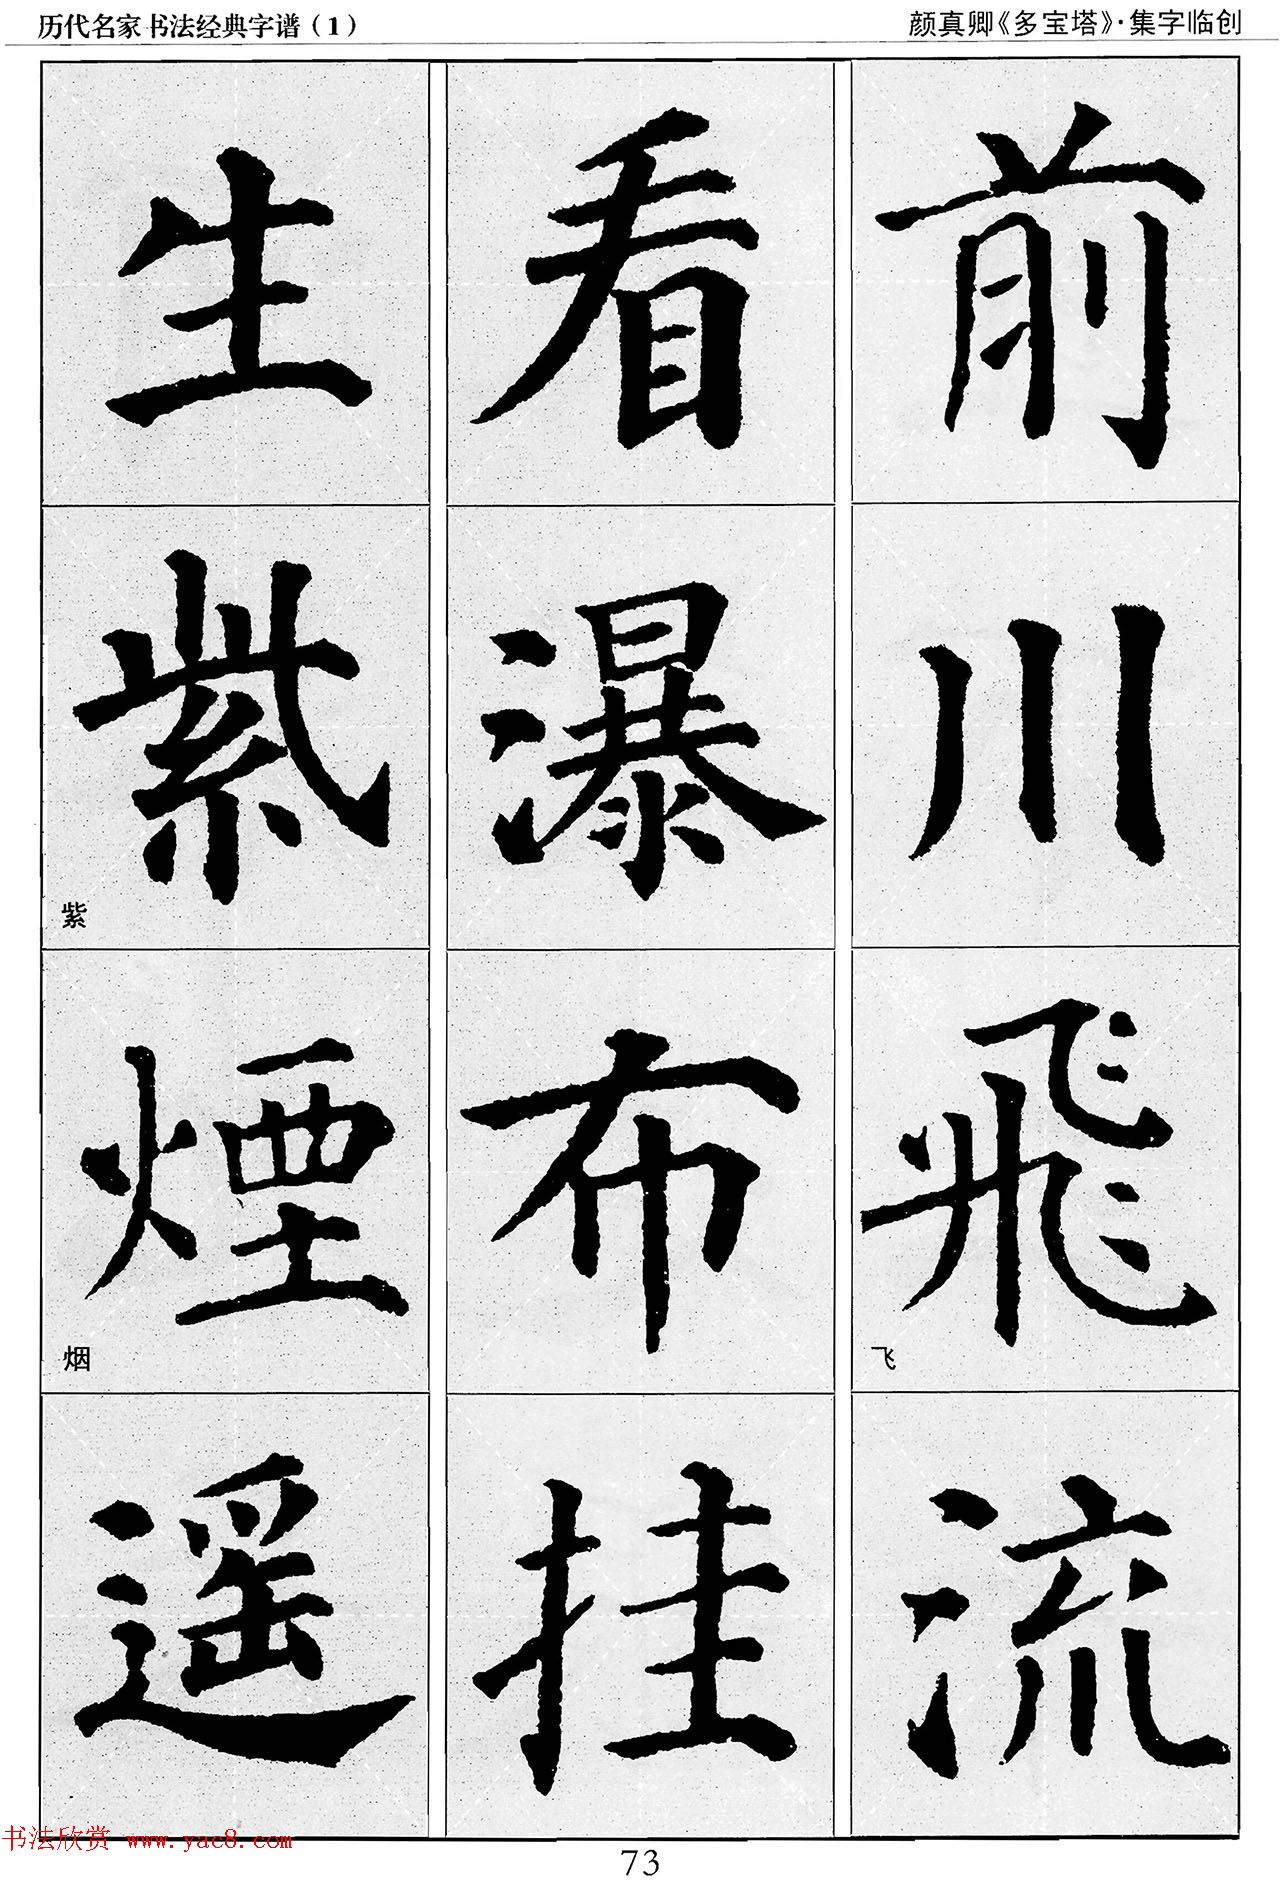 历代名家书法经典字谱（1）
颜真卿《多宝塔》·集字临创
前川飛流
飞
看瀑布挂
生紫煙遥
紫
烟
书法欣赏 www.yac8.com
73